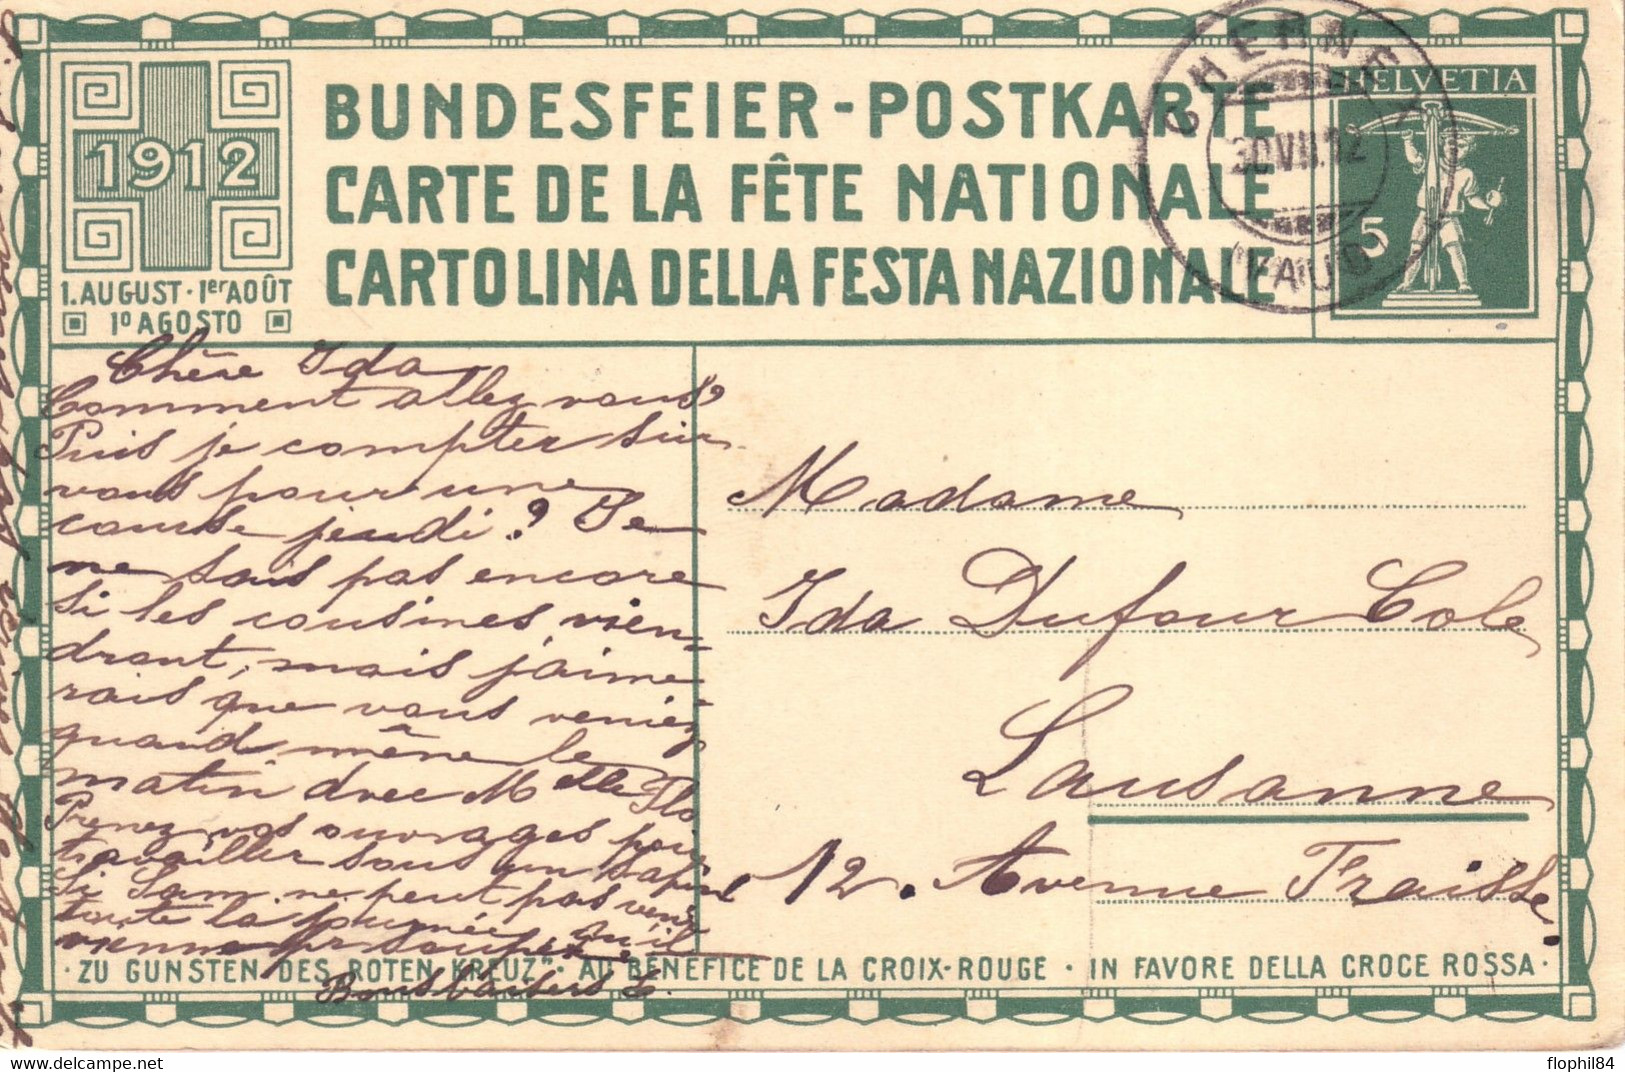 BUNDESFEIER-POSTKARTE
CARTE DE LA FÊTE NATIONALE
CARTOLINA DELLA FESTA NAZIONALE
1912
1. AUGUST · 1er AOÛT
1º AGOSTO
HELVETIA
5
30 VII. 12
VAUD
Chère Ida
Comment allez vous?
Puis je compter sur
vous pour une
course jeudi? Je
ne sais pas encore
si les cousines vien-
dront, mais j'aime-
rais que vous veniez
quand même le
matin avec Melle Flo
Prenez vos ouvrages pour
travailler sous un sapin
Si Sam ne peut pas venir
toute la journée qu'il
vienne pr souper
Bons baisers
Madame
Ida Dufour Cole
Lausanne
12. Avenue Fraisse.
· ZU GUNSTEN DES „ROTEN KREUZ" · AU BÉNÉFICE DE LA CROIX-ROUGE · IN FAVORE DELLA CROCE ROSSA ·
flophil84